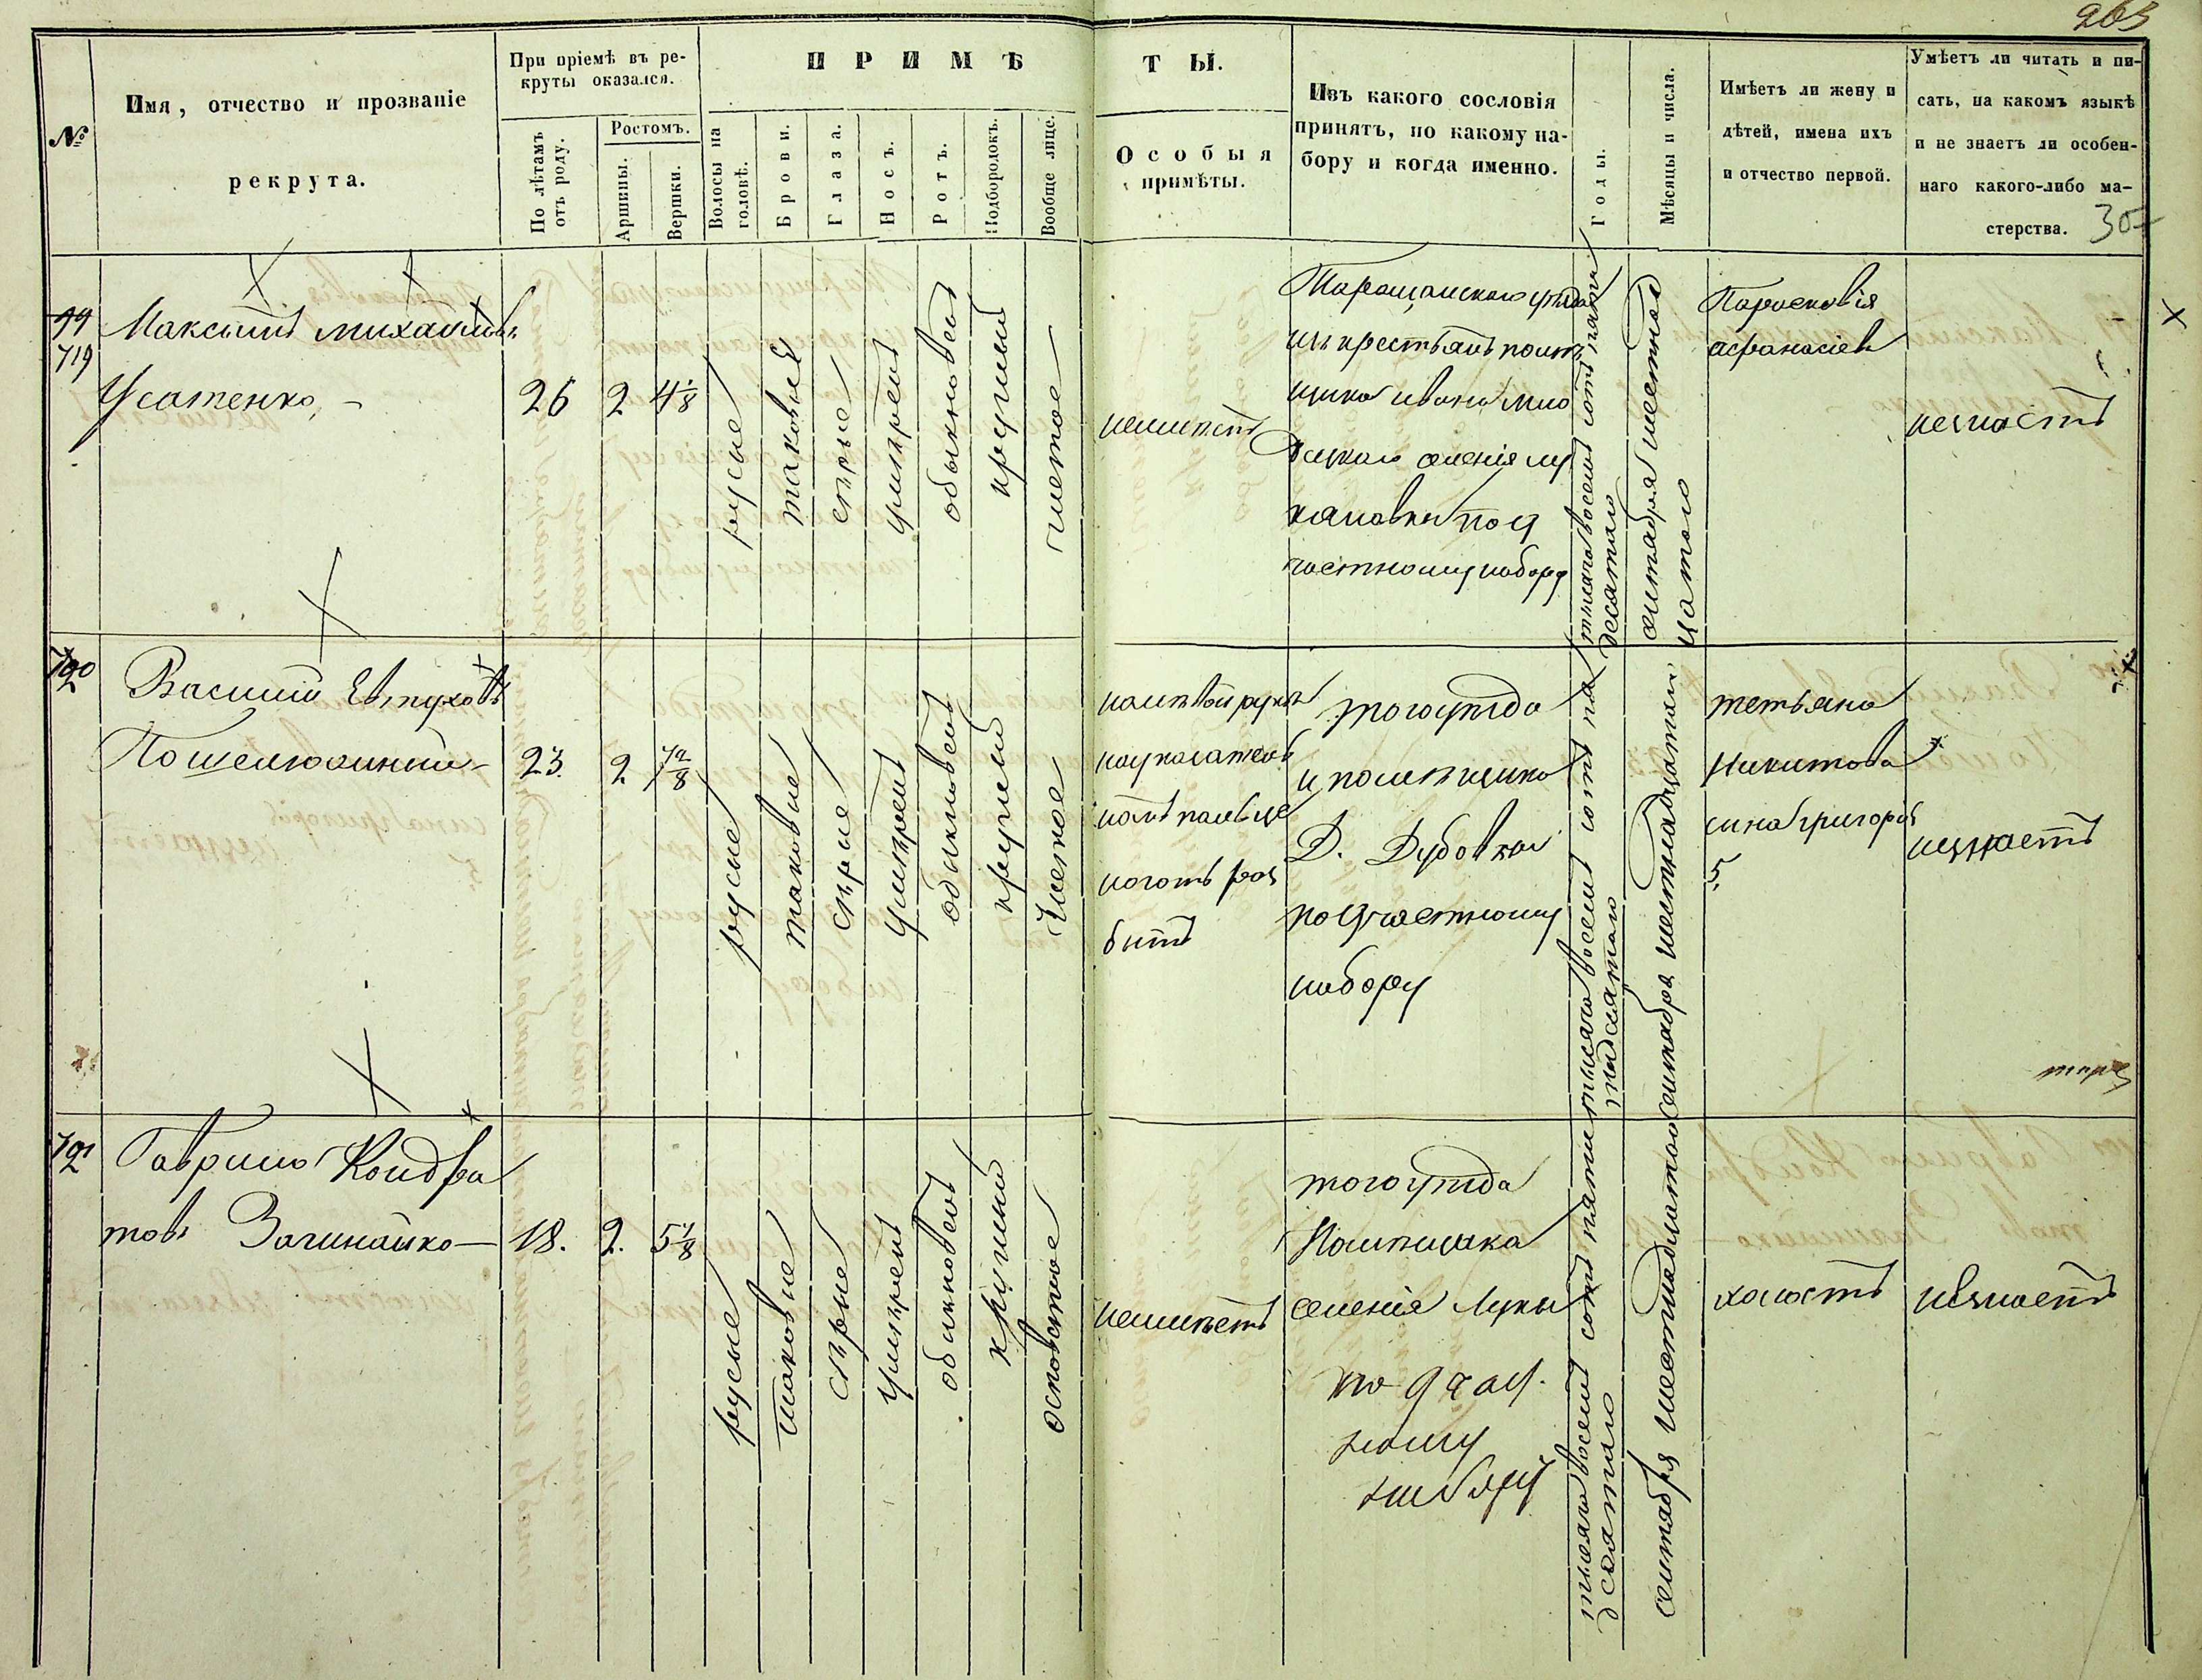 263
№
Имя, отчество и прозваніе
рекрута.
При пріемѣ въ ре-
круты оказался.
По лѣтамъ
отъ роду.
Ростомъ.
Аршины.
Вершки.
ПРИМѢ
ТЫ.
Волосы на
головѣ.
Брови.
Глаза.
Носъ.
Ротъ.
Подбородокъ.
Вообще лице.
Особыя
примѣты.
Изъ какого сословія
принятъ, по какому на-
бору и когда именно.
Годы.
Мѣсяцы и числа.
Имѣетъ ли жену и
дѣтей, имена ихъ
и отчество первой.
Умѣетъ ли читать и пи-
сать, на какомъ языкѣ
и не знаетъ ли особен-
наго какого-либо ма-
стерства.
30
719
Максимъ Михайловъ
Усатенко
26
2
4 1/8
русые
таковые
сѣрые
умѣренъ
обыкновенъ
круглый
чистое
неимѣетъ
Таращанскаго уѣзда
изъ крестьянъ помѣ
щика Ивана
селенія Лу
кяновки по 9
частному набору
тысяча восемъ сотъ пяти
десятаго
сентября шестнад
цатаго
Парасковія
Афанасіева
незнаетъ
720
Василій Евтуховъ
23.
2
7 2/8
русые
таковые
сѣрые
умѣренъ
обыкновенъ
круглый
чистое
на лѣвой рукѣ
на указатель
номъ пальце
ноготь роз
битъ
того уѣзда
и помѣщика
Д. Дубовки
по 9 частному
набору
тысяча восемъ сотъ пя
тидесятаго
сентября шестнадцатаго
Тетьяна
Никитова
сынъ Григорій
5.
незнаетъ
721
Гаврило Кондра
товъ
18.
2.
5 1/8
русые
таковые
сѣрые
умѣренъ
обыкновенъ
круглый
осповатое
неимѣетъ
того уѣзда
Помѣщика
селенія Луки
по 9 час.
ному
набору
тысяча восемъ сотъ пяти
десятаго
сентября шестнадцатаго
холостъ
незнаетъ